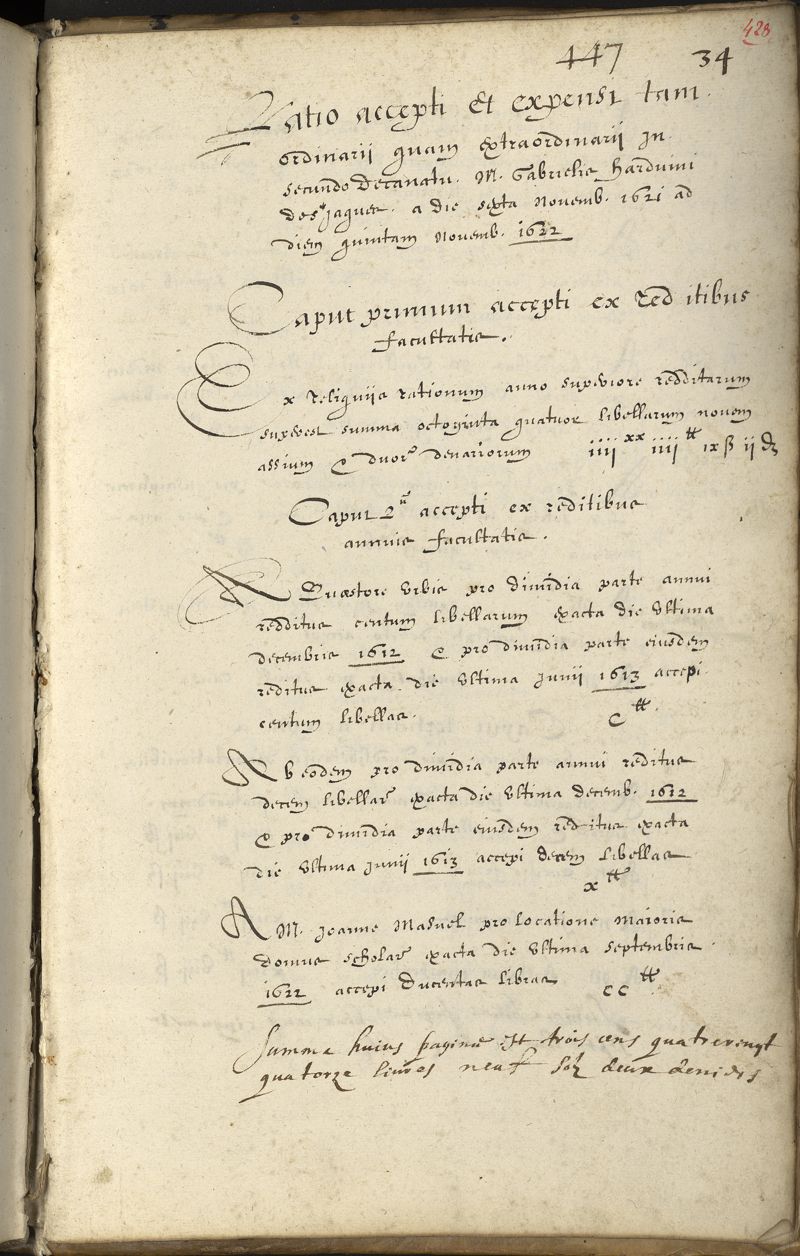 428
447 34
Ratio accepti et expensi tam
ordinarii quam extraordinarii in
secundo Decanatu. M. Gabrielis harduini
des Jaques. a die sexta Novemb. 1621 ad
diem quintam Novemb. 1622
Caput primum accepti ex redditibus
facultatis.
Ex reliquiis rationum anno superiore redditarum
superest summa octoginta quatuor libellarum novem
assium & duorũ denariorum iiii xx iiii ₶ ix ß ii đ
Caput 2ũ accepti ex reditibus
annuis facultatis.
A Quæstore Urbis pro dimidia parte annui
redditus centum libellarum exacta die Ultima
decembris 1612 & pro dimidia parte eiusdem
reditus exacta die Ultima Junii 1613 accepi
centum libellas. C ₶.
Ab eodem pro dimidia parte annui reditus
decem libellarũ exacta die Ultima decemb. 1612
& pro dimidia parte eiusdem reditus exacta
die Ultima Junii 1613 accepi decem libellas
x ₶
A M. Joanne Masuel pro locatione maioris
domus scholarũ exacta die Ultima septembris.
1622 accepi ducentas libras cc ₶.
Summa huius paginæ est trois cens quatrevingt
quatorze livres neuf solz deux deniers